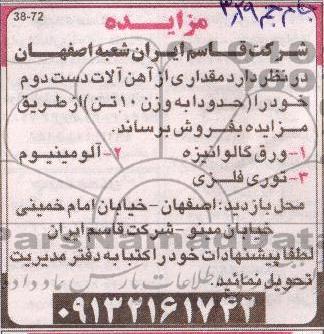 جام جم ۳،۲۹
38-72
مزایده
شرکت قاسم ایران شعبه اصفهان
در نظر دارد مقداری از آهن آلات دست دوم
خود را (حدودا به وزن ۱۰ تن) از طریق
مزایده بفروش برساند.
۱- ورق گالوانیزه ۲- آلومینیوم
۳- توری فلزی
محل بازدید: اصفهان - خیابان امام خمینی
خیابان مینو - شرکت قاسم ایران
لطفا پیشنهادات خود را کتبا به دفتر مدیریت
تحویل نمائید.
۰۹۱۳۲۱۶۱۷۴۲